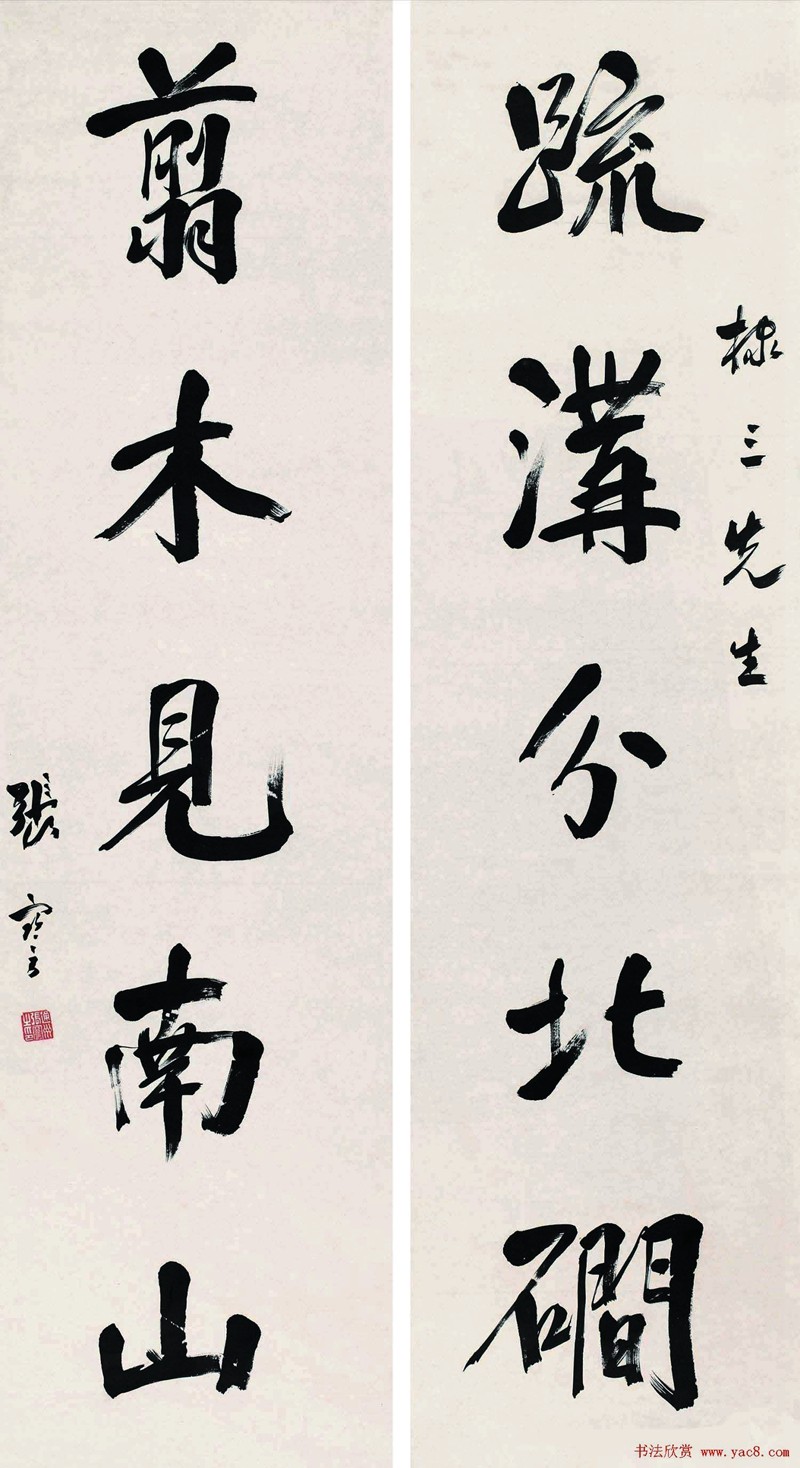 棣三先生
疏溝分北磵
翦木見南山
張謇
书法欣赏 www.yac8.com